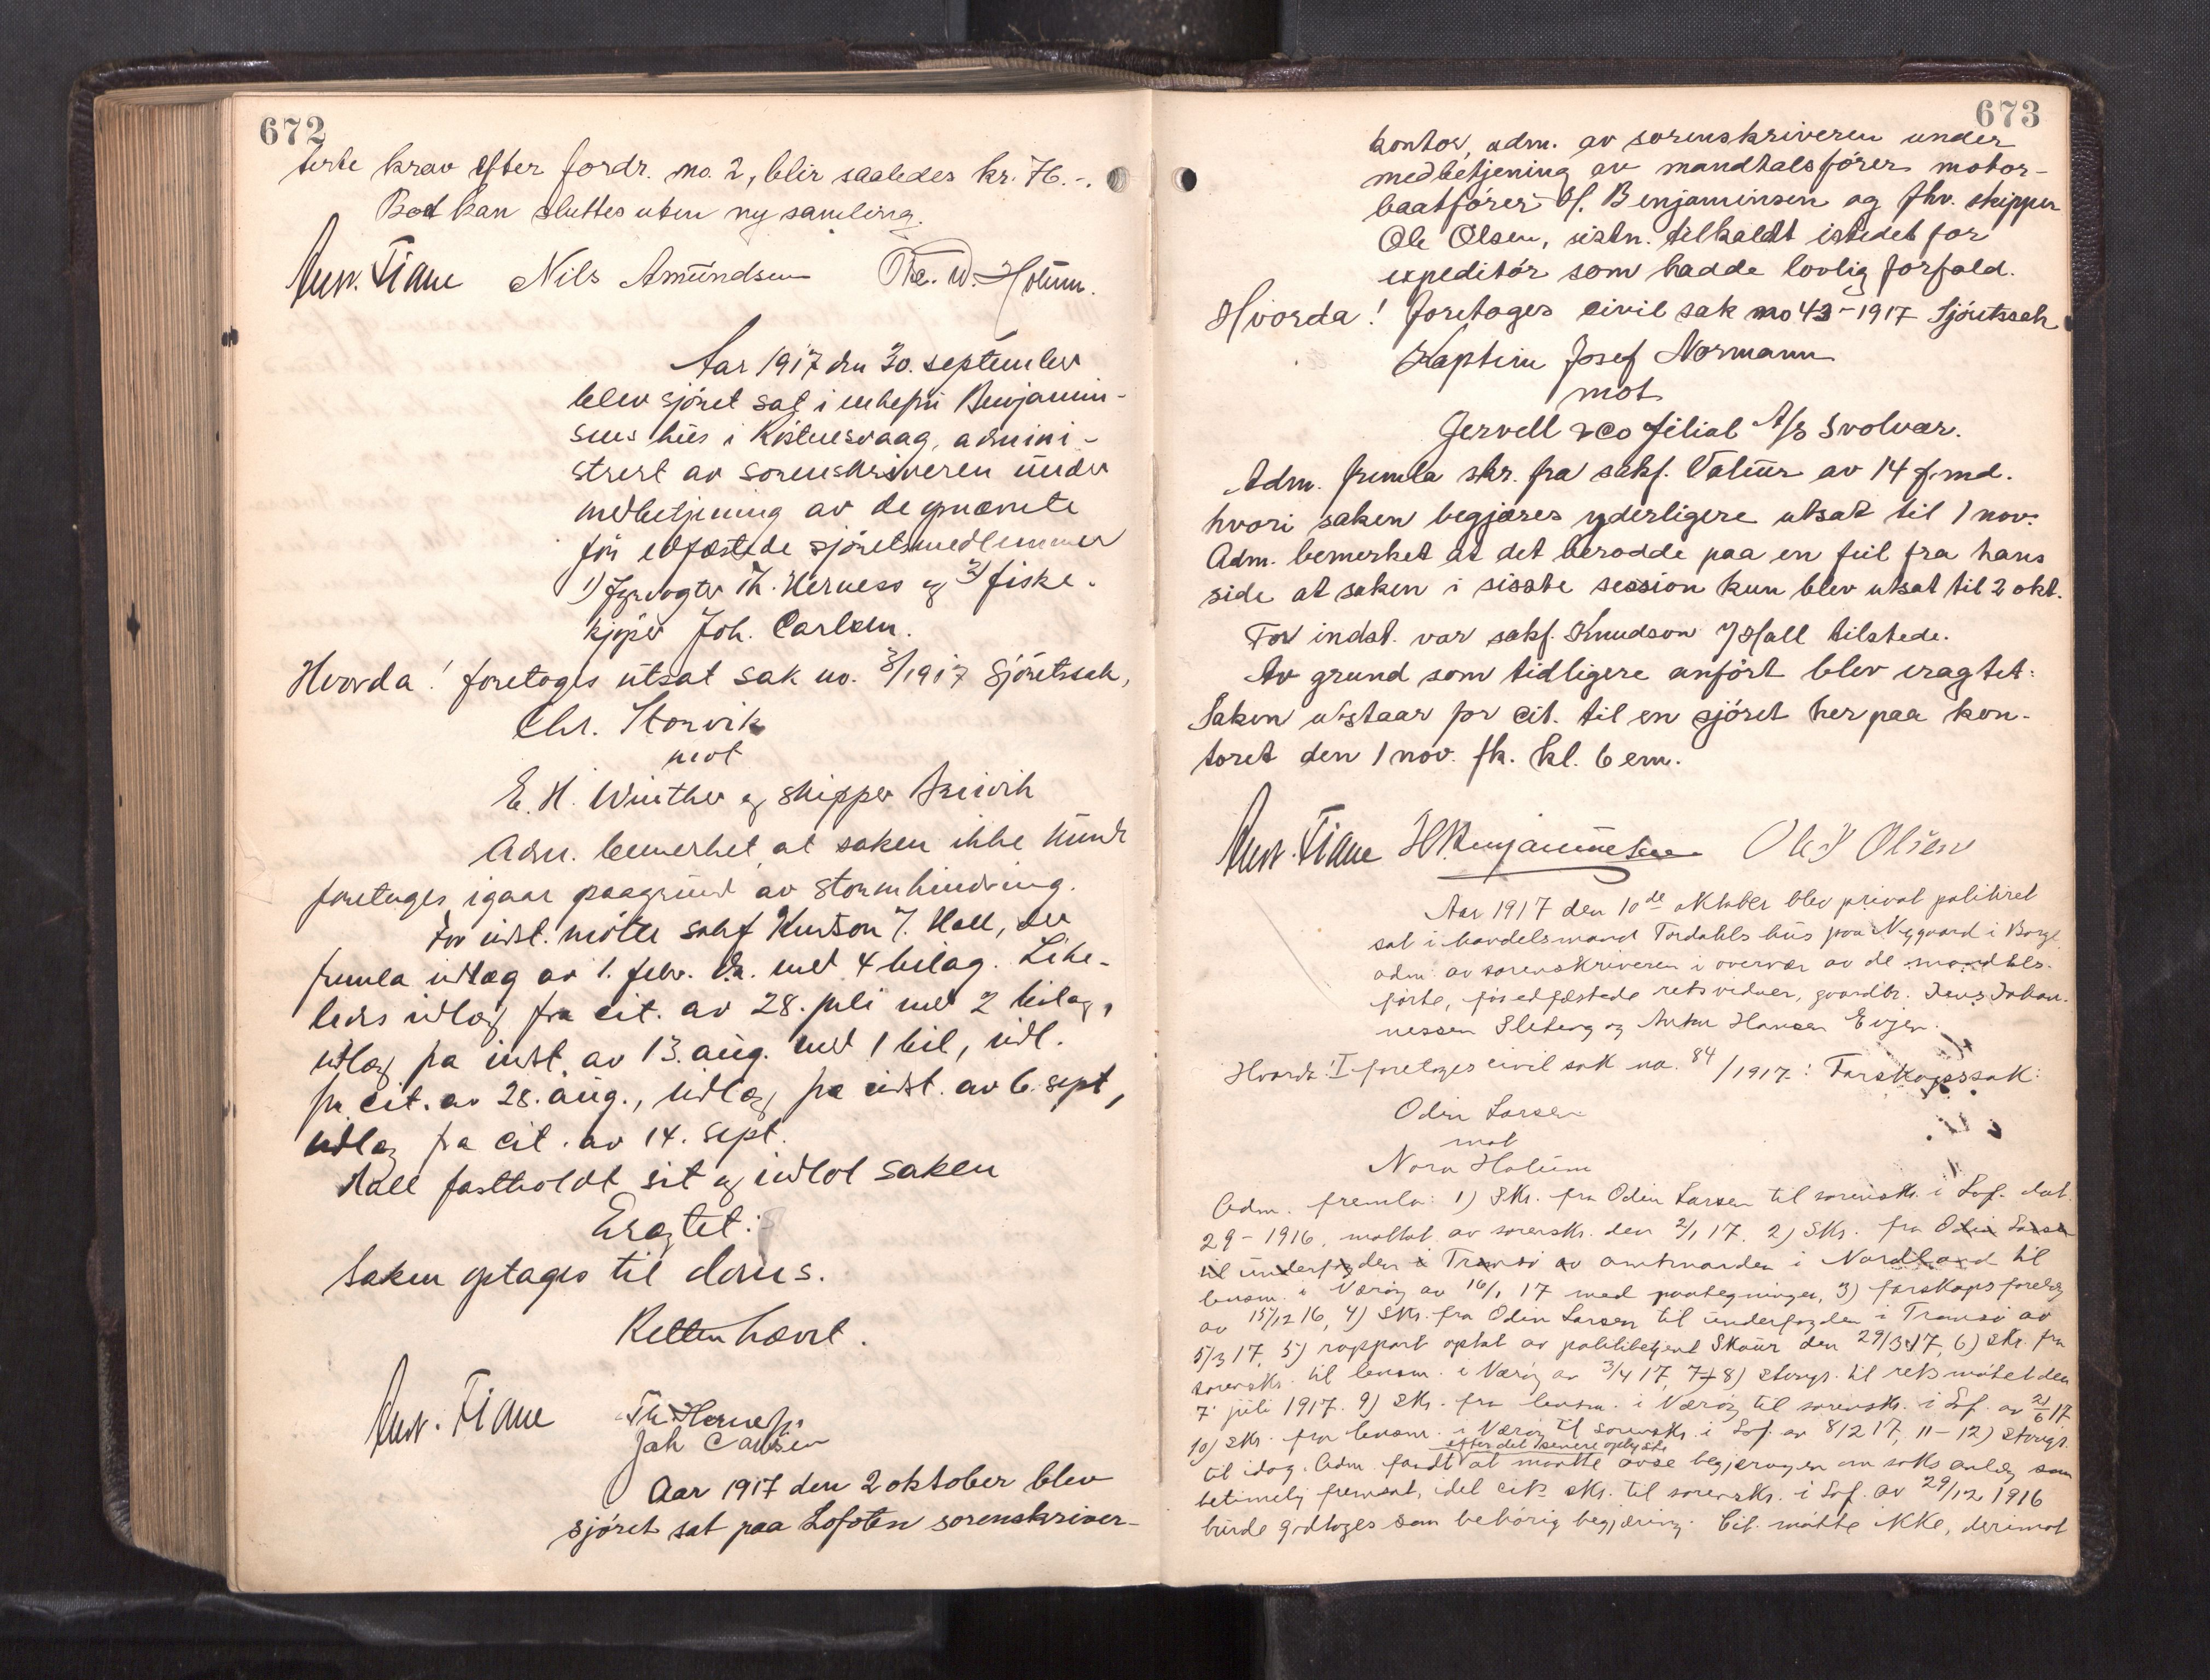 672
terte krav efter fordr. no. 2, blir saaledes kr. 76.-.
Boet kan sluttes uten ny samling.
Anv. Fiane Nils Amundsen W. Holum.
Aar 1917 den 30. september
blev sjöret sat i enkefru Benjamin-
sens hus i Kistnesvaag, admini-
strert av sorenskriveren under
medbetjening av de opnævnte
för edfæstede sjöretsmedlemmer
1) fyrvogter Th. Herness og 2) fiske-
kjöper Joh. Carlsen.
Hvorda! foretoges utsat sak no. 3/1917 Sjöretssak,
Chr. Storvik
mot
E. H. Winther og skipper
Adm. bemerket at saken ikke kunde
foretages igaar paagrund av stormhindring.
For indst. mötte sakf Knutson f. Hall, der
fremla indlæg av 1. febr. d.a. med 4 bilag. Like-
ledes indlæg fra cit. av 28. juli med 2 bilag,
indlæg fra indst. av 13. aug. med 1 bil, indl.
fra cit. av 28. aug., indlæg fra indst. av 6. sept,
indlæg fra cit. av 14. sept.
Hall fastholdt sit og indlot saken
Eragtet:
Saken optages til doms.
Retten hævet.
Anv. Fiane Th. Herness
Joh Carlsen
Aar 1917 den 2 oktober blev
sjöret sat paa Lofoten sorenskriver-
673
kontor, adm. av sorenskriveren under
medbetjening av mandtalsförer motor-
baatförer H. Benjaminsen og fhv. skipper
Ole Olsen, sistn. tilkaldt istedet for
expeditör som hadde lovlig forfald.
Hvorda! foretoges civil sak no 43-1917 Sjöretssak
Kaptein Josef Normann
mot
Jervell & Co filial A/s Svolvær.
Adm. fremla skr. fra sakf. Vatur av 14 f. md.
hvori saken begjæres yderligere utsat til 1 nov.
Adm. bemerket at det berodde paa en feil fra hans
side at saken i sisste session kun blev utsat til 2 okt.
For indst. var sakf. Knudson f Hall tilstede.
Av grund som tidligere anfört blev eragtet:
Saken utstaar for cit. til en sjöret her paa kon-
toret den 1 nov. fk. kl. 6 em.
Anv. Fiane H Benjaminsen Ole Olsen
Aar 1917 den 10de oktober blev privat politiret
sat i handelsmand Tordahls hus paa Nygaard i Borge
adm. av sorenskriveren i overvær av de mandtals-
förte, för edfæstede retsvidner, gaardbr. Jens Johan-
nessen Sleberg og Anton Hansen Evjen.
Hvorda! I foretoges civil sak no. 84/1917: Farskapssak:
Odin Larsen
mot
Nora Holum
Adm. fremla: 1) Skr. fra Odin Larsen til sorenskr. i Lof. dat.
29 - 1916, mottat av sorenskr. den 2/1 17. 2) Skr. fra Odin Larsen
til underfogden i Tromsö av amtmanden i Nordland til
lensm. i Værøy av 16/1 17 med paategninger, 3) farskapsforelæg
av 15/12 16, 4) Skr. fra Odin Larsen til underfogden i Tromsö av
5/3 17, 5) rapport optat av politibetjent Skaur den 29/3 17, 6) Skr. fra
sorenskr. til lensm. i Værøy av 3/4 17, 7-8) Stevngr. til retsmötet den
7 juli 1917. 9) Skr. fra lensm. i Værøy til sorenskr. i Lof. av 21/6 17
10) Skr. fra lensm. i Værøy til sorenskr. i Lof. av 8/2 17, 11-12) Stevngr.
til idag. Adm. fandt efter det senere oplyste at maatte anse begjæringen om saks anlæg som
betimelig fremsat, idet cit.s skr. til sorenskr. i Lof. av 29/12 1916
burde godtages som behörig begjæring. Cit. mötte ikke, derimot